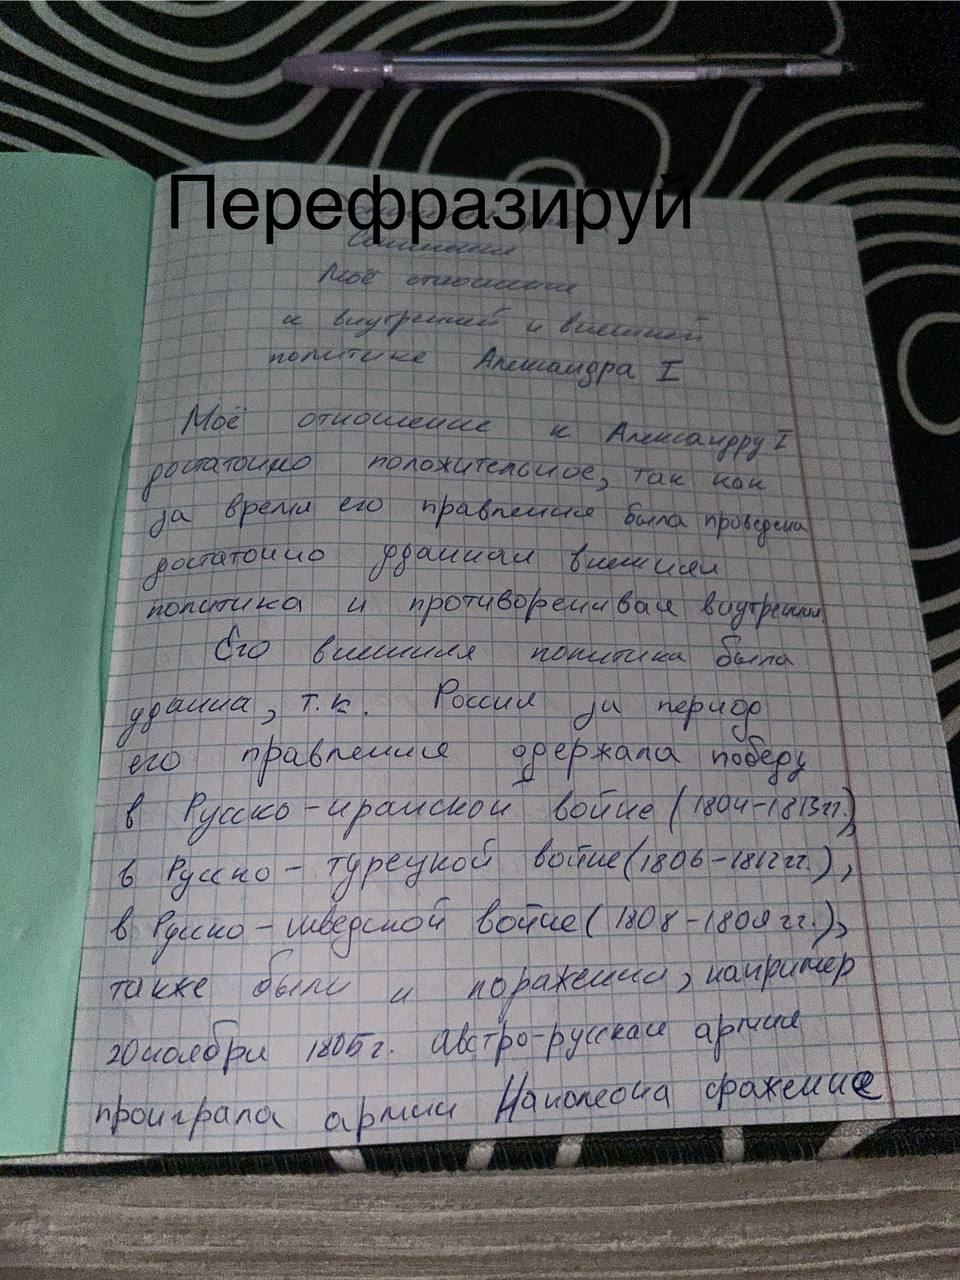 Перефразируй
Сочинение
Моё отношение
к внутренней и внешней
политике Александра I
Моё отношение к Александру I
достаточно положительное, так как
за время его правления была проведена
достаточно удачная внешняя
политика и противоречивая внутренняя
Его внешняя политика была
удачна, т.к. Россия за период
его правления одержала победу
в Русско-иранской войне (1804-1813гг.)
в Русско-турецкой войне (1806-1812гг.),
в Русско-шведской войне (1808-1809 гг.),
также были и поражения, например
20 ноября 1805г. австро-русская армия
проиграла армии Наполеона сражение